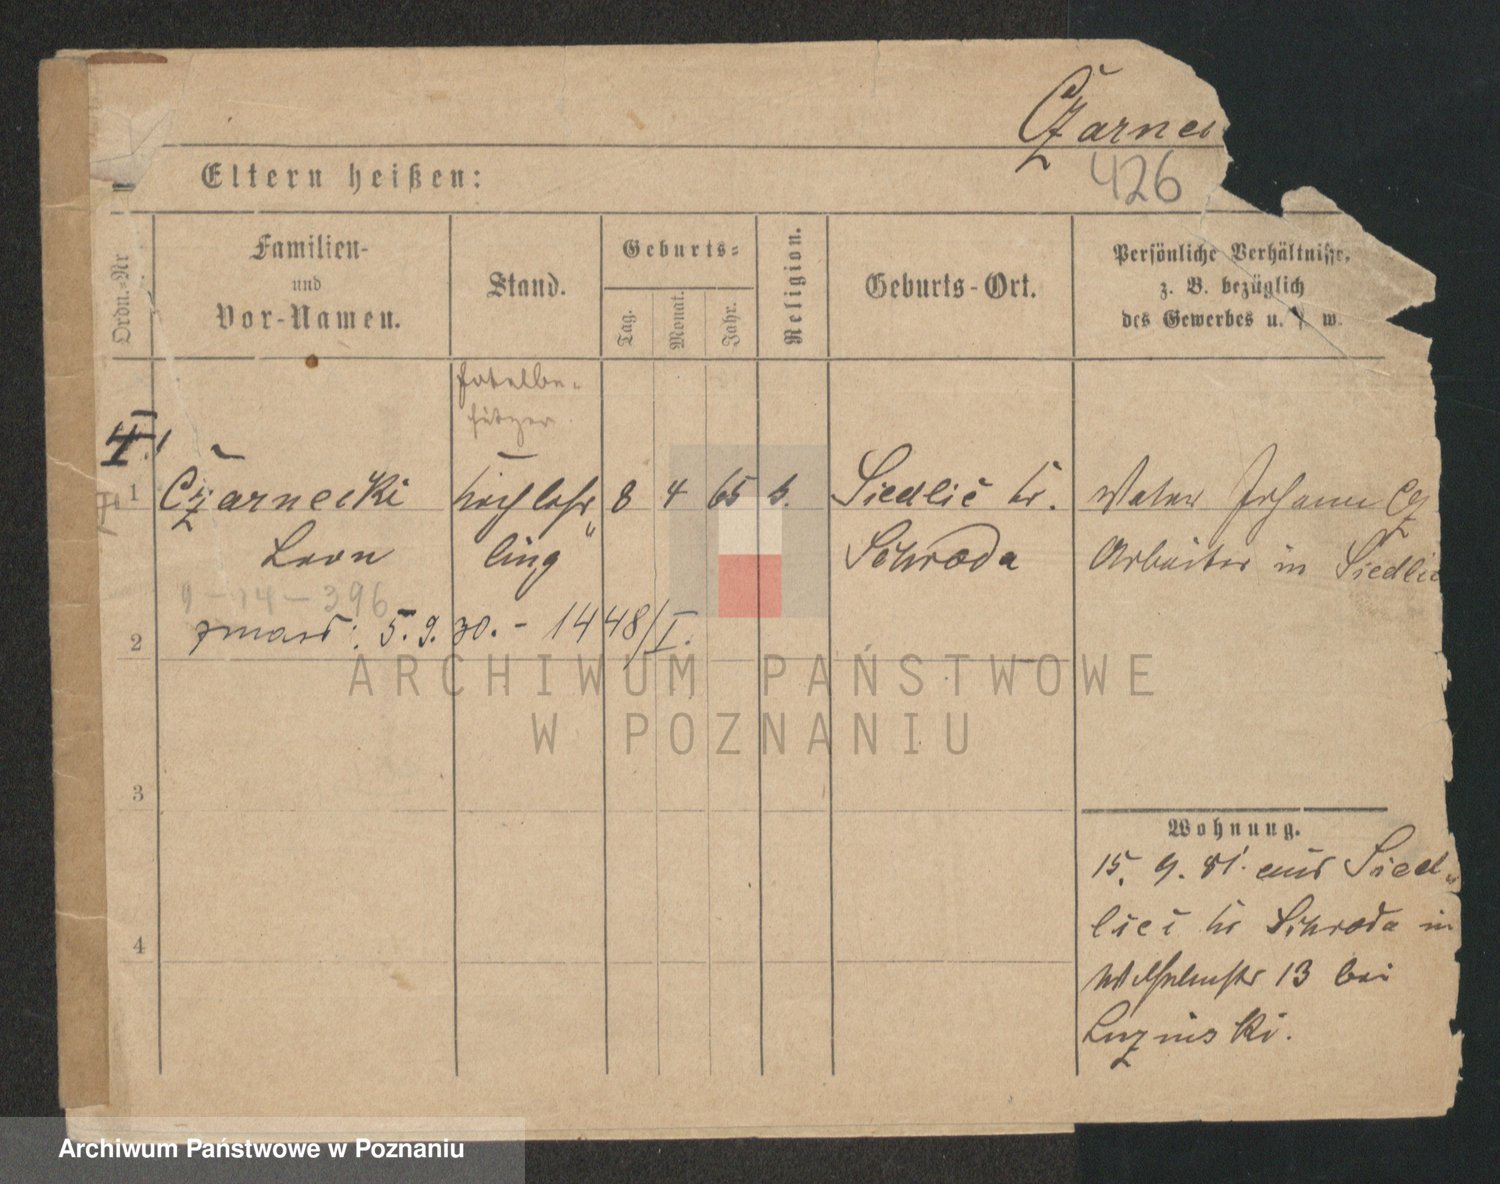 Czarnec
426
Eltern heißen:
Ordn.-Nr
Familien-
und
Vor-Namen.
Stand.
Geburts-
Tag.
Monat.
Jahr.
Religion.
Geburts-Ort.
Persönliche Verhältnisse,
z. B. bezüglich
des Gewerbes u. s. w.
Hotelbe-
sitzer
1
Czarnecki Kochlehr 8 4 65 k. Siedlec Kr. Vater Johann Cz
Leon ling Schroda Arbeiter in Siedlec
9-14-396
zmarł: 5.9.30. - 1448/I.
2
3
4
Wohnung.
15. 9. 81. aus Sied-
lec Kr Schroda in
Wilhelmstr 13 bei
Luzinski.
ARCHIWUM PAŃSTWOWE
W POZNANIU
Archiwum Państwowe w Poznaniu